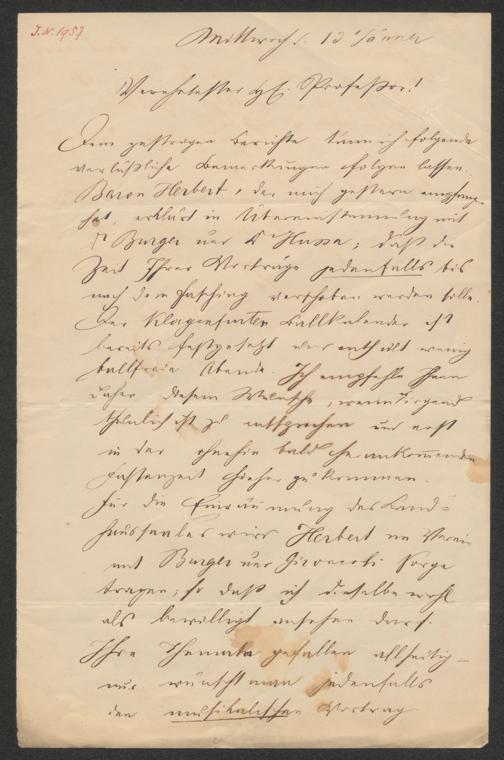 J.N. 1957
Mittwoch d. 13 Jänner
Verehrtester H. Professor!
Dem gestrigen Berichte kann ich folgende
verläßliche Bemerkungen folgen lassen.
Baron Herbert, der mich gestern empfang
hat, erklärt in Übereinstimmung mit
Dr Burger und Dr Hussa, daß die
Zeit Ihrer Vorträge jedenfalls bis
nach dem Fasching verschoben werden solle.
Der Klagenfurter Ballkalender ist
bereits festgesetzt und enthält wenig
ballfreie Abende. Ich empfehle Ihnen
daher diesem Wunsche, wenn irgend
thunlich ist zu entsprechen und erst
in der ohnehin bald herankommenden
Fastenzeit hieher zu kommen.
Für die Einräumung des Land-
haussaales wird Herbert im Verein
mit Burger und Sorge
tragen; so daß ich dieselbe wohl
als bewilligt ansehen darf.
Ihre Themata gefallen allseitig –
nur wünscht man jedenfalls
den musikalischen Vortrag